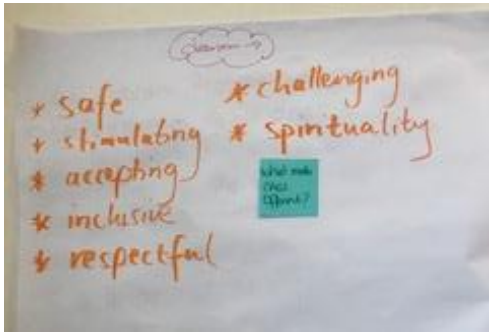 * safe
+ stimulating
* accepting
* inclusive
* respectful
* challenging
* spirituality
what